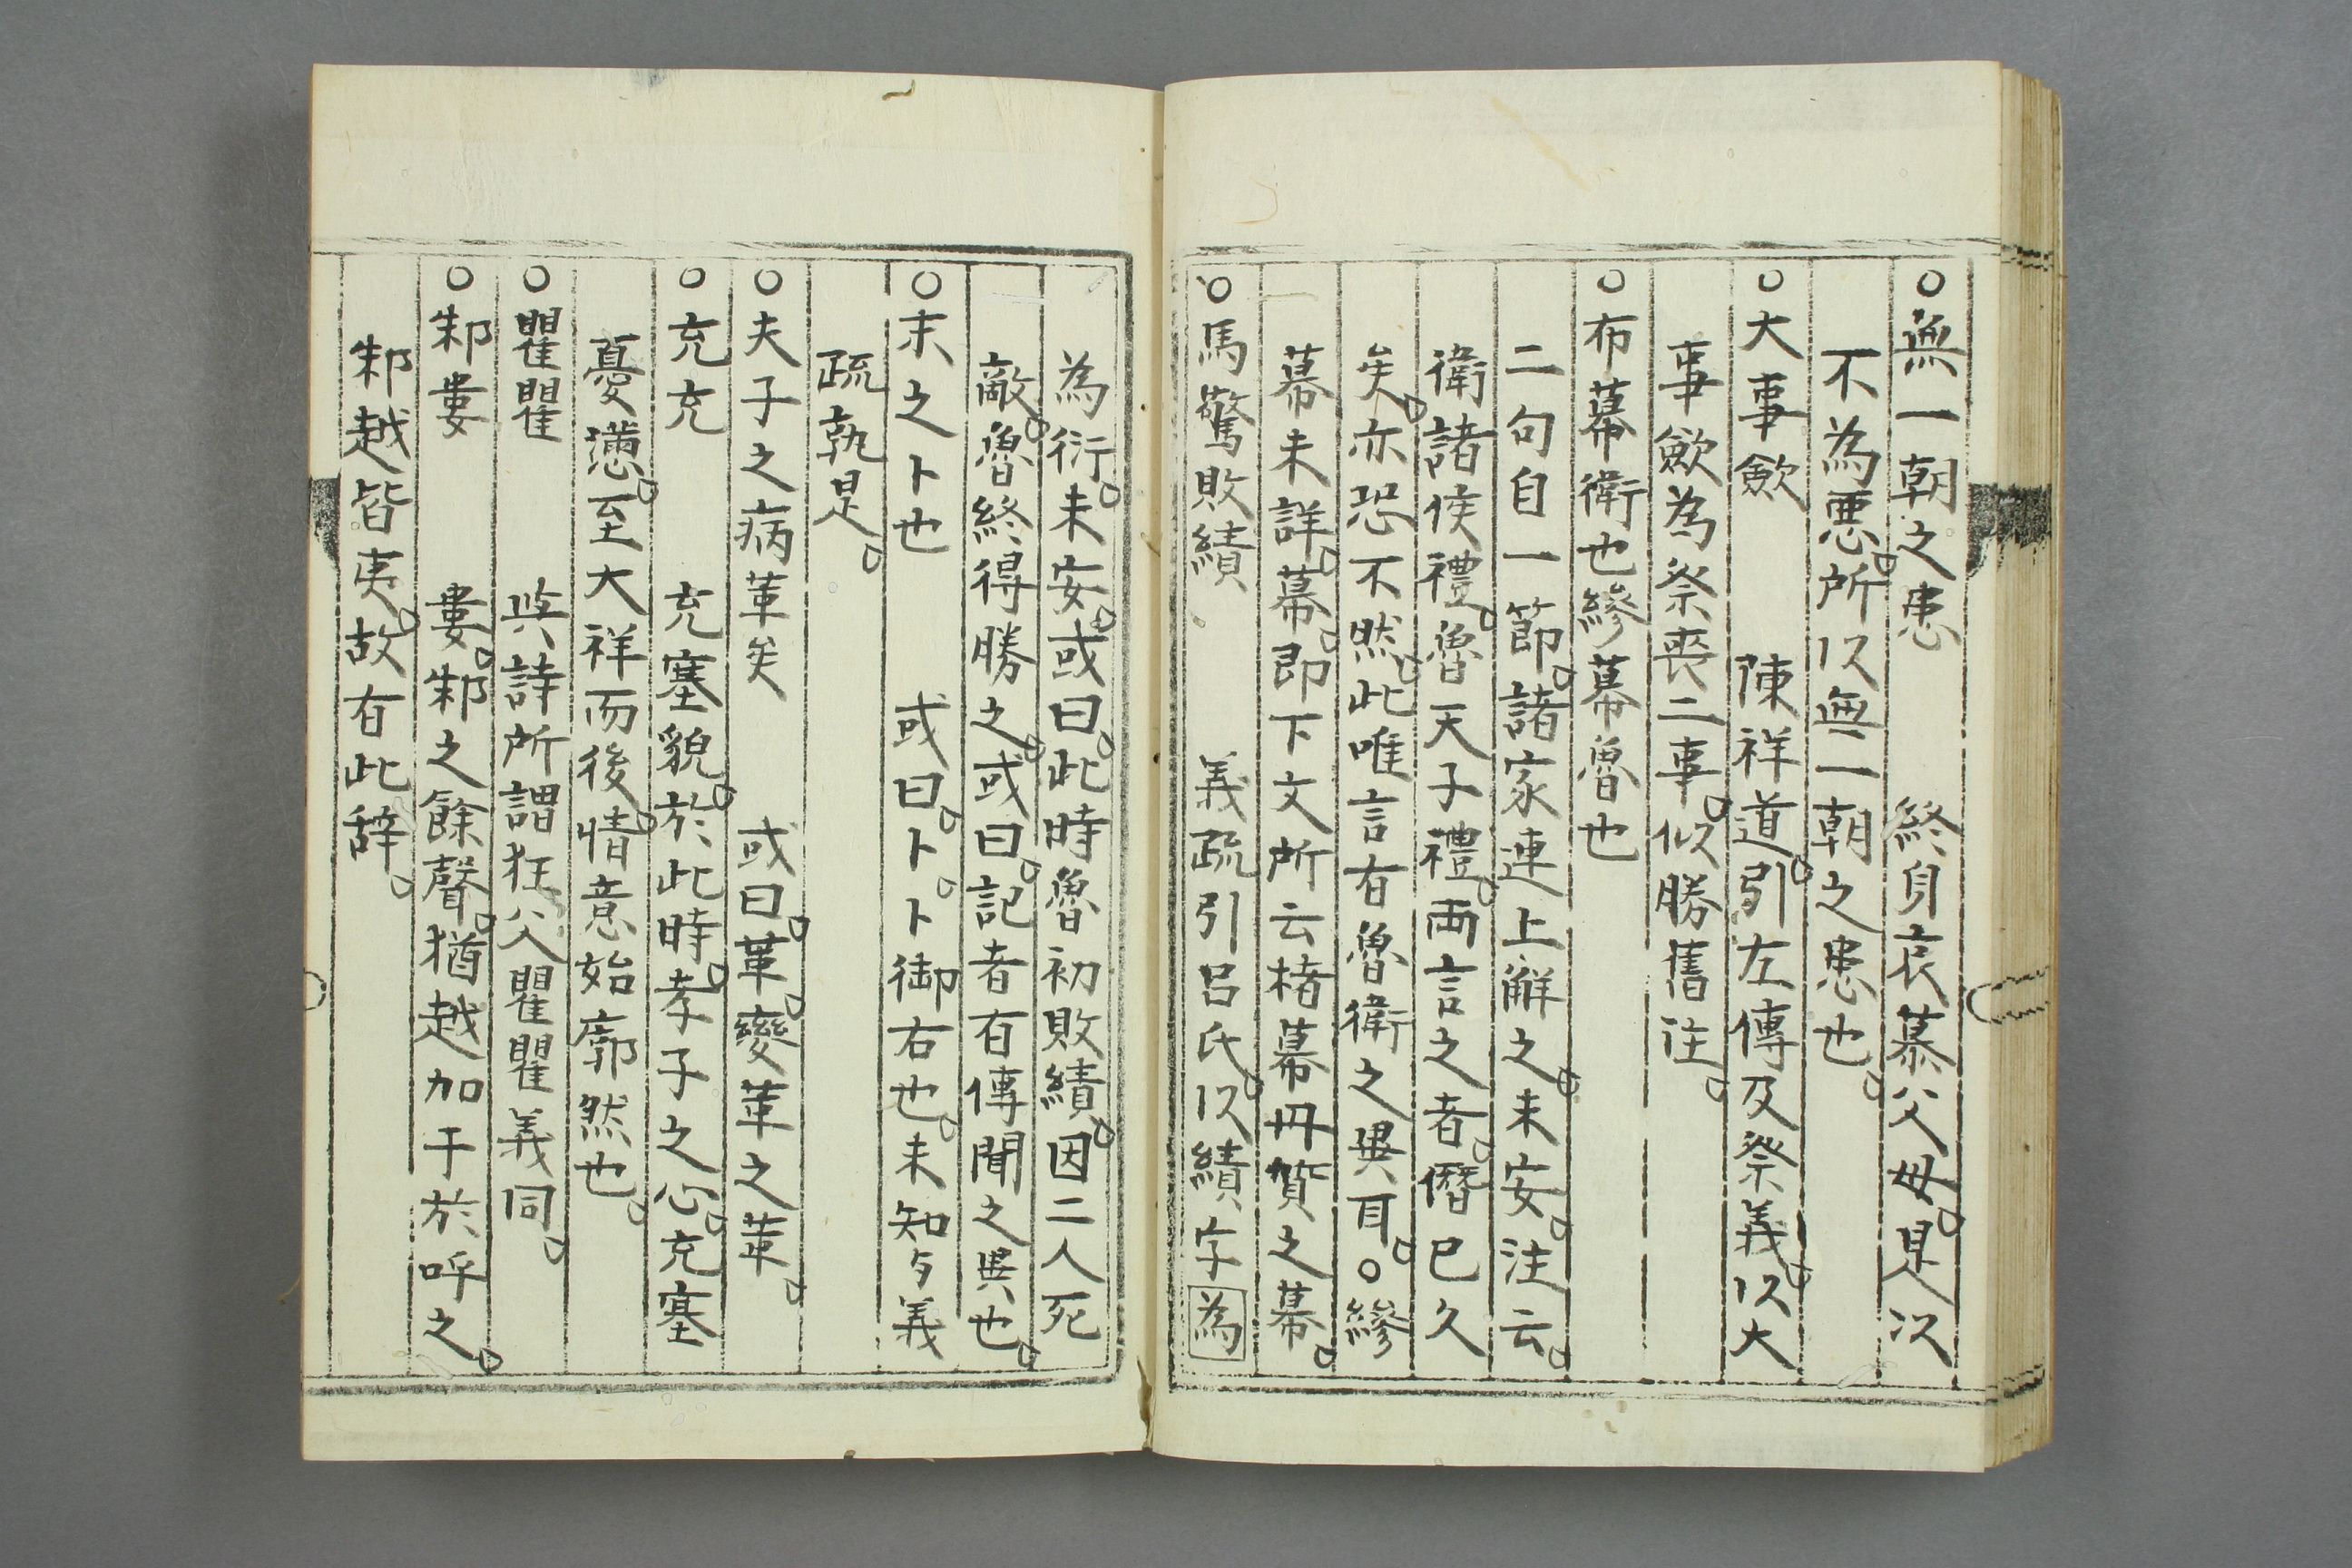 ○無一朝之患 終身哀慕父母。是以
不為惡。所以無一朝之患也。
○大事斂 陳祥道。引左傳及祭義。以大
事斂為祭喪二事。似勝舊注。
○布幕衛也縿幕魯也
二句自一節。諸家連上解之。未安。注云。
衛諸侯禮。魯天子禮。両言之者。僭已久
矣。亦恐不然。此唯言有魯衛之異耳。○縿
幕未詳。幕。即下文所云楮幕丹質之幕。
○馬驚敗績 義疏引呂氏。以績字為
為衍。未安。或曰。此時魯初敗績。因二人死
敵。魯終得勝之。或曰。記者有傳聞之異也。
○末之卜也 或曰。卜。卜御右也。未知与義
疏孰是。
○夫子之病革矣 或曰。革。變革之革。
○充充 充塞貌。於此時。孝子之心。充塞
憂懣。至大祥而後。情意始廓然也。
○瞿瞿 與詩所謂狂夫瞿瞿義同。
○邾婁 婁。邾之餘聲。猶越加于於呼之。
邾越皆夷。故有此辞。